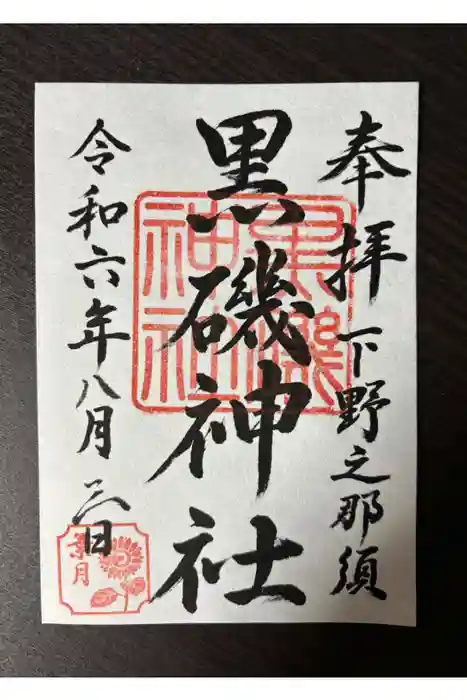 奉拝 下野之那須
黒磯神社
黒磯
神社
令和六年八月三日
葉月